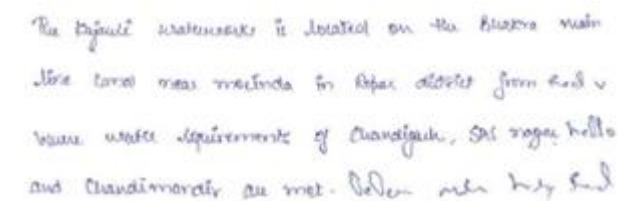 The Kajauli waterworks is located on the Bhakra main
line canal near morinda in Ropar district from
water requirements of Chandigarh, SAS nagar hello
and Chandimandir are met.